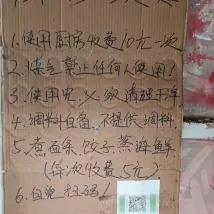 1.使用厨房收费10元一次
2.煤气禁止任何人使用!
3.使用完必须清理干净
4.调料自备,不提供调料
5.煮面条、饺子、蒸海鲜
(每次收费5元)
6.